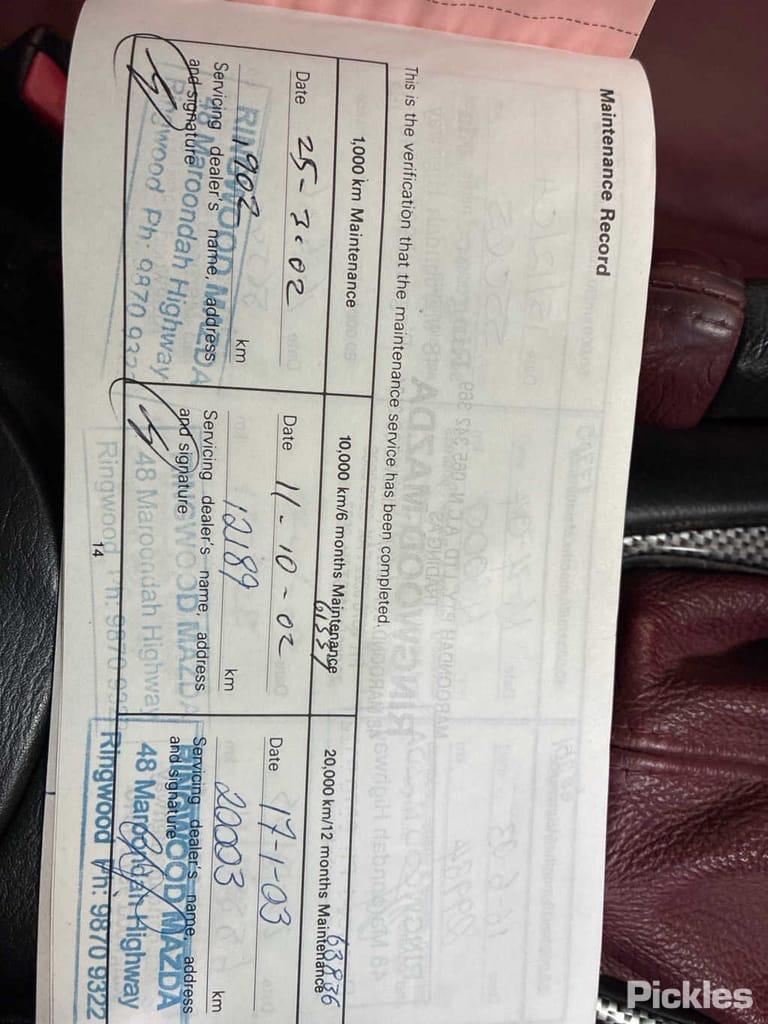 Maintenance Record
This is the verification that the maintenance service has been completed.
1,000 km Maintenance
Date 25-3-02
1902 km
Servicing dealer's name, address
and signature
RINGWOOD MAZDA
48 Maroondah Highway
Ringwood Ph: 9870 932
10,000 km/6 months Maintenance
61337
Date 11-10-02
12189 km
Servicing dealer's name, address
and signature
RINGWOOD MAZDA
48 Maroondah Highway
Ringwood Ph: 9870 932
20,000 km/12 months Maintenance
63836
Date 17-1-03
20003 km
Servicing dealer's name, address
and signature
RINGWOOD MAZDA
48 Maroondah Highway
Ringwood Ph: 9870 9322
14
Pickles